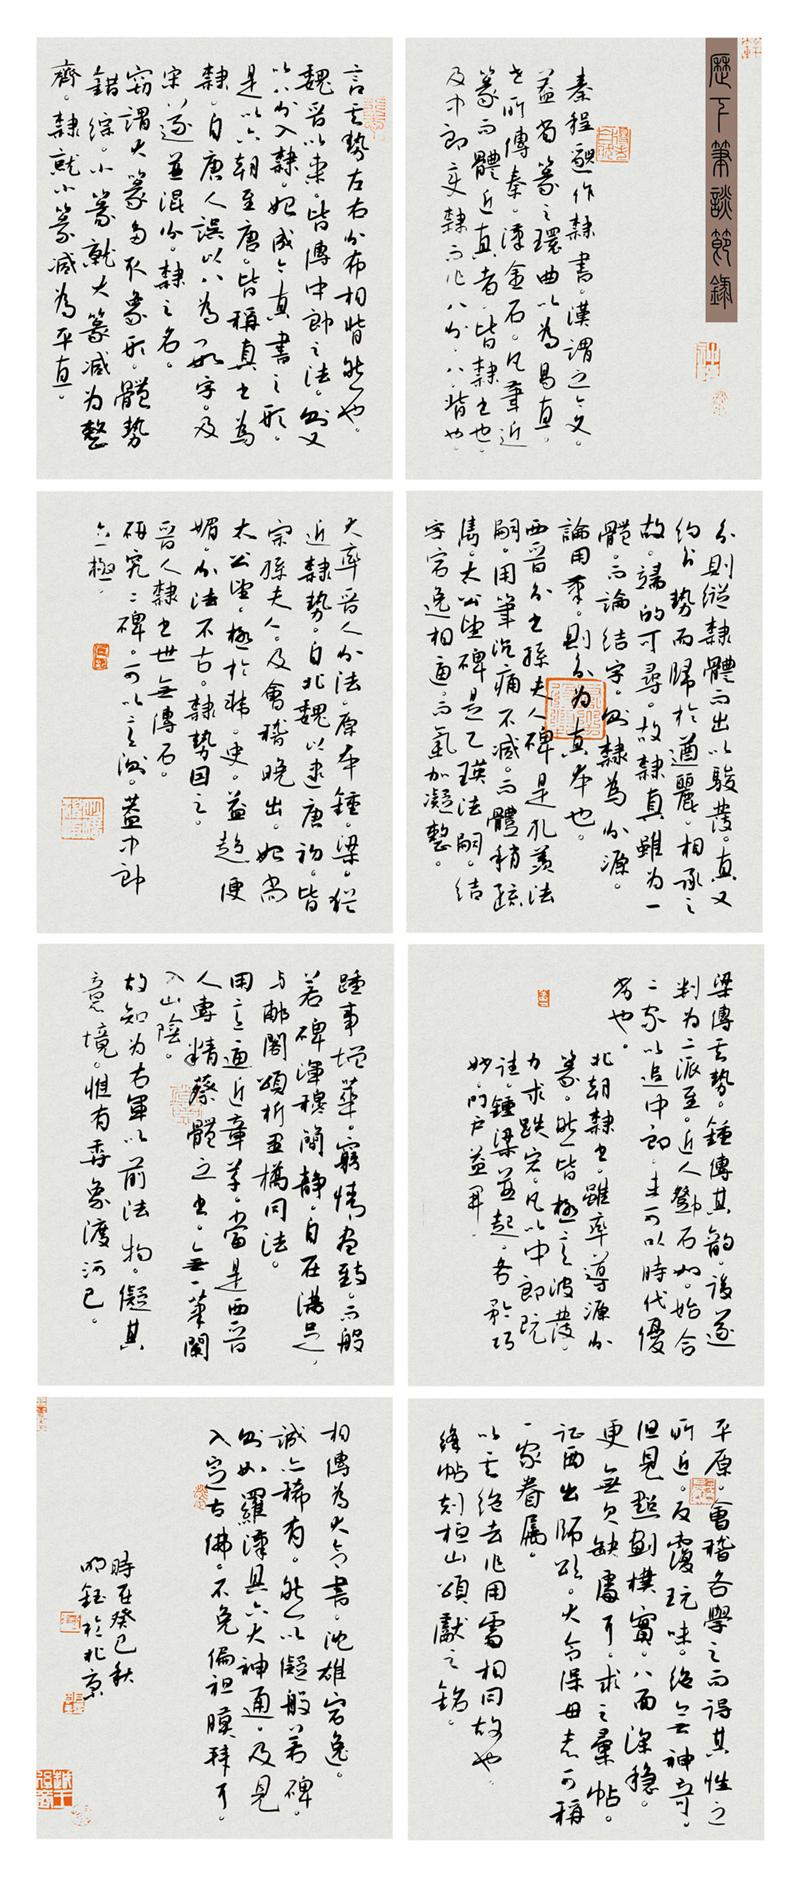 歷下筆談節錄
秦程邈作隸書。漢謂之今文。
益省篆之環曲以為易直。
世所傳秦。漢金石。凡筆近
篆而體近真者。皆隸書也。
及中郎變隸而作八分。八。背也。
言其勢左右分布相背然也。
魏晉以來。皆傳中郎之法。則又
以八分入隸。始成今真書之形。
是以六朝至唐。皆稱真書為
隸。自唐人誤以八為一字。及
宋。遂並混分。隸之名。
竊謂大篆多取象形。體勢
錯綜。小篆就大篆減為整
齊。隸就小篆減為平直。
分則縱隸體而出以駿發。真又
約分勢而歸於遒麗。相承之
故。端的可尋。故隸真雖為一
體。而論結字。則隸為分源。
論用筆。則分為真本也。
西晉分書孫夫人碑是孔羨法
嗣。用筆沉痛不減。而體稍疏
雋。太公望碑是乙瑛法嗣。結
字宕逸相逼。而氣加凝整。
大率晉人分法。原本鍾。梁。猶
近隸勢。自北魏以逮唐初。皆
宗孫夫人。及會稽晚出。始尚
太公望。極於韓。史。益趨便
媚。分法不古。隸勢因之。
晉人隸書世無傳石。
研究二碑。可以意測。蓋中郎
立極。
梁傳其勢。鍾傳其韻。後遂
判為二派。至。近人鄧石如。始合
二家以追中郎。未可以時代優
劣也。
北朝隸書。雖率導源分
篆。然皆極意波發。
力求跌宕。凡以中郎既
往。鍾梁並起。各矜巧
妙。門戶益開。
踵事增華。窮情盡致。而般
若碑渾穆簡靜。自在滿足。
與郙閣頌析里橋同法。
用意逼近章草。當是西晉
人專精蔡體之書。無一筆闌
入山陰。
故知為右軍以前法物。擬其
意境。惟有香象渡河已。
平原。會稽各學之而得其性之
所近。反覆玩味。絕無神奇。
但見點劃樸實。八面深穩。
更無欠缺處耳。求之彙帖。
西出師頌。大令保母志可稱
一家眷屬。
以其絕去作用處相同故也。
絳帖刻桓山頌獻之銘。
相傳為大令書。沈雄宕逸。
誠亦稀有。然以擬般若碑。
則如羅漢具六大神通。及見
入定古佛。不免偏袒膜拜耳。
時在癸巳秋
明鈺於北京